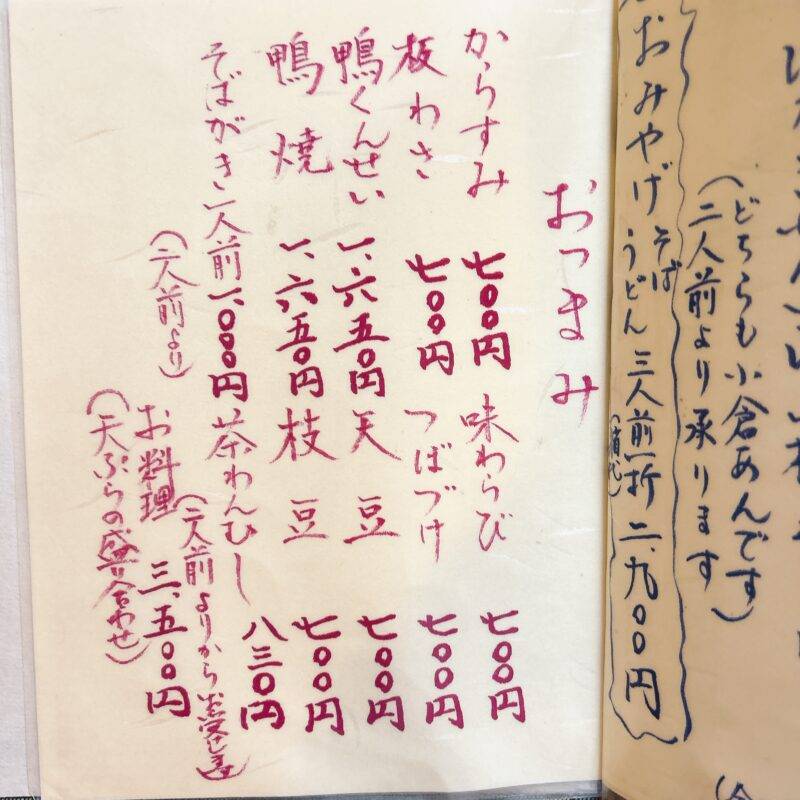 (どちらも小倉あんです)
(二人前より承ります)
おみやげ そば うどん 三人前一折 二、九〇〇円
おつまみ
からすみ 七〇〇円
味わらび 七〇〇円
板わさ 七〇〇円
つばづけ 七〇〇円
鴨くんせい 一、六五〇円
天豆 七〇〇円
鴨焼 一、六五〇円
枝豆 七〇〇円
そばがき 一人前 一、〇〇〇円
(二人前より)
茶わんむし 八三〇円
(二人前よりからお受けします)
お料理 三、五〇〇円
(天ぷらの盛り合わせ)